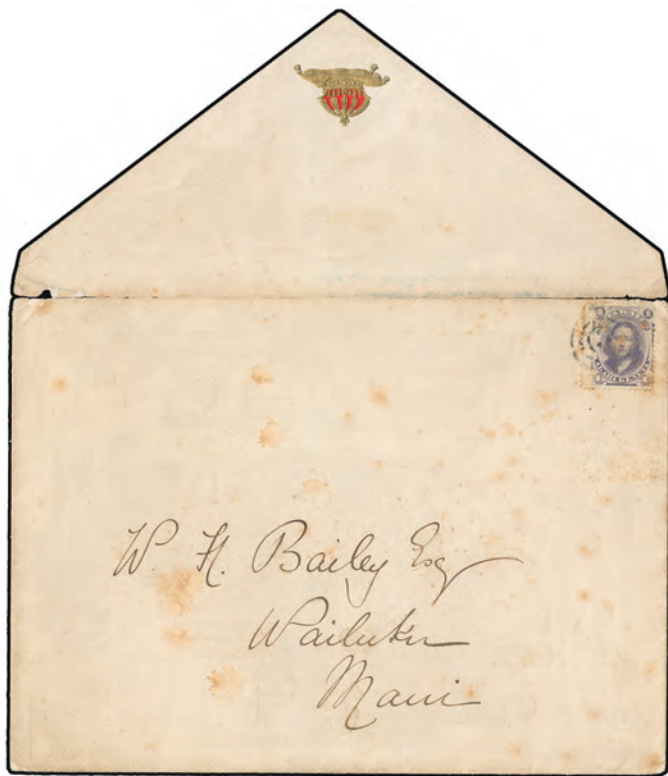 W. H. Bailey Esq
Wailuku
Maui